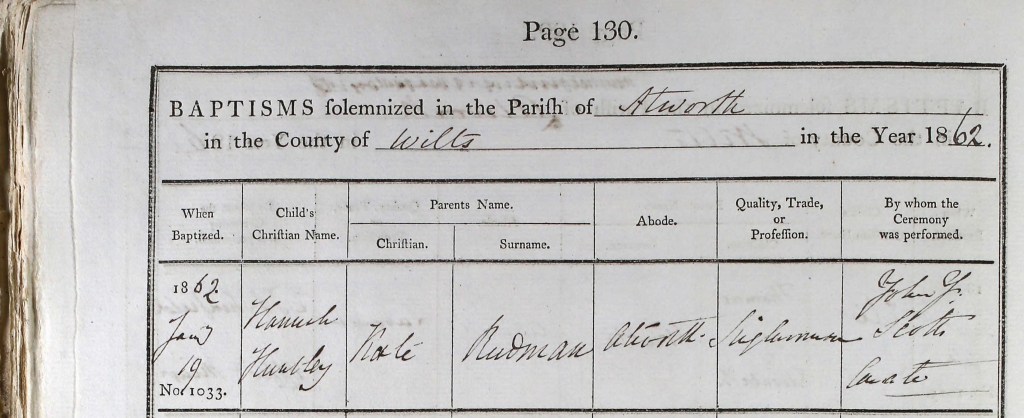 Page 130.
BAPTISMS solemnized in the Parish of Atworth
in the County of Wilts in the Year 1862.
When
Baptized.
Child's
Christian Name.
Parents Name.
Christian.
Surname.
Abode.
Quality, Trade,
or
Profession.
By whom the
Ceremony
was performed.
1862.
Jany
19
No. 1033.
Hannah
Huntley
Kate
Rudman
Atworth
Singlewoman
John J.
Scott
Curate